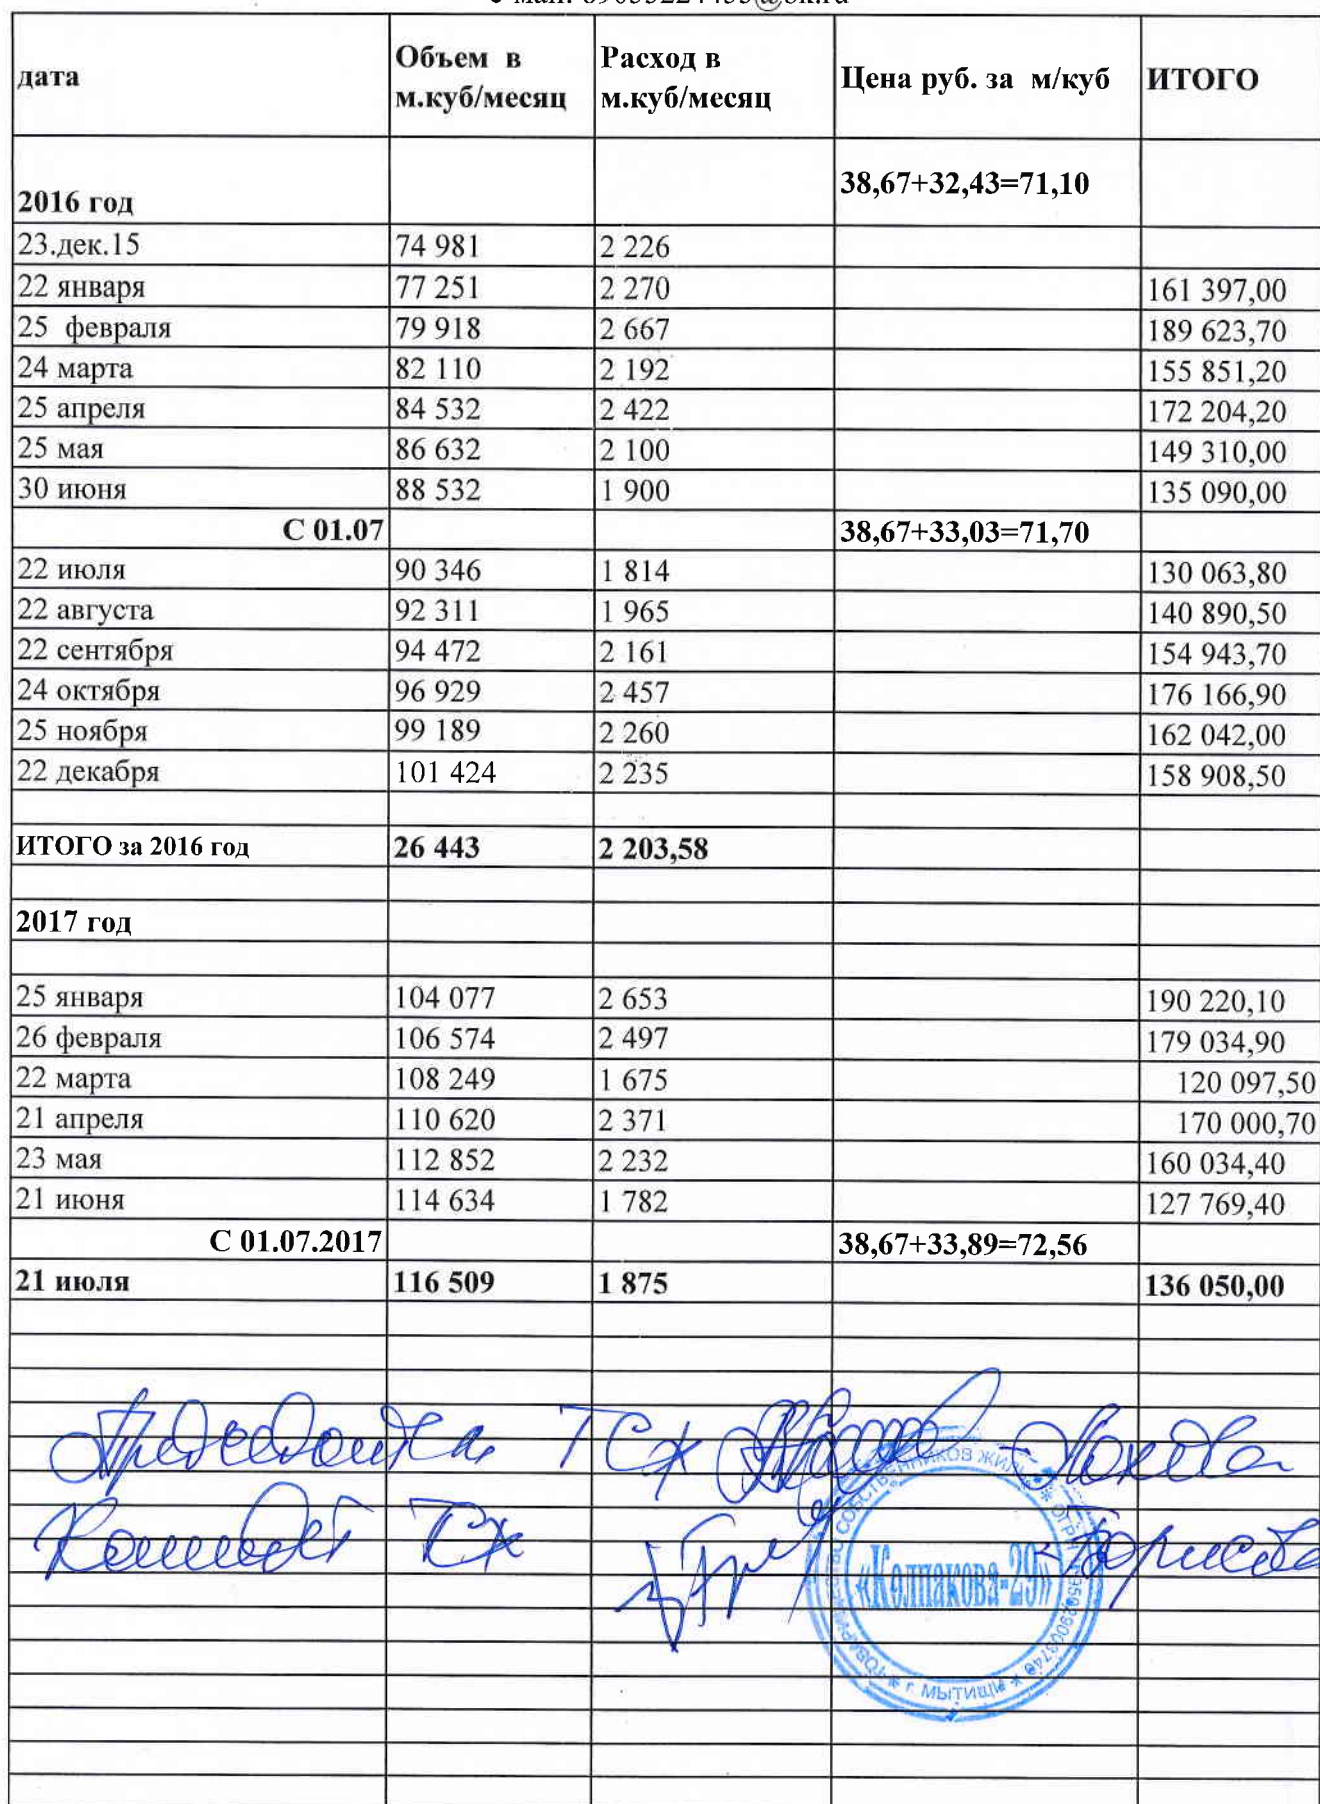 дата Объем в м.куб/месяц Расход в м.куб/месяц Цена руб. за м/куб ИТОГО
2016 год 38,67+32,43=71,10
23.дек.15 74 981 2 226
22 января 77 251 2 270 161 397,00
25 февраля 79 918 2 667 189 623,70
24 марта 82 110 2 192 155 851,20
25 апреля 84 532 2 422 172 204,20
25 мая 86 632 2 100 149 310,00
30 июня 88 532 1 900 135 090,00
С 01.07 38,67+33,03=71,70
22 июля 90 346 1 814 130 063,80
22 августа 92 311 1 965 140 890,50
22 сентября 94 472 2 161 154 943,70
24 октября 96 929 2 457 176 166,90
25 ноября 99 189 2 260 162 042,00
22 декабря 101 424 2 235 158 908,50
ИТОГО за 2016 год 26 443 2 203,58
2017 год
25 января 104 077 2 653 190 220,10
26 февраля 106 574 2 497 179 034,90
22 марта 108 249 1 675 120 097,50
21 апреля 110 620 2 371 170 000,70
23 мая 112 852 2 232 160 034,40
21 июня 114 634 1 782 127 769,40
С 01.07.2017 38,67+33,89=72,56
21 июля 116 509 1 875 136 050,00
ТСЖ
ТСЖ Борисова
«Колпакова-29»
г. МЫТИЩИ